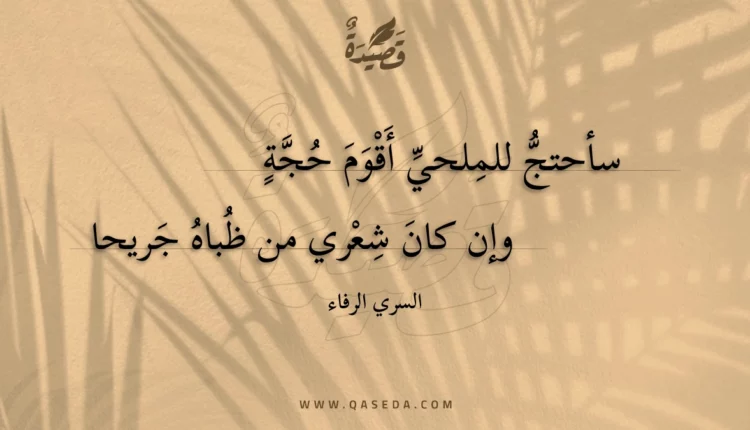 قَصِيْدَةٌ
سأحتجُّ للمِلحيِّ أَقْوَمَ حُجَّةٍ
وإن كانَ شِعْري من ظُباهُ جَريحا
السري الرفاء
WWW.QASEDA.COM